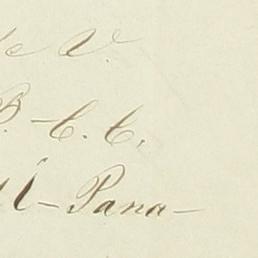 e V.
B. - C. C.
l - Pana -